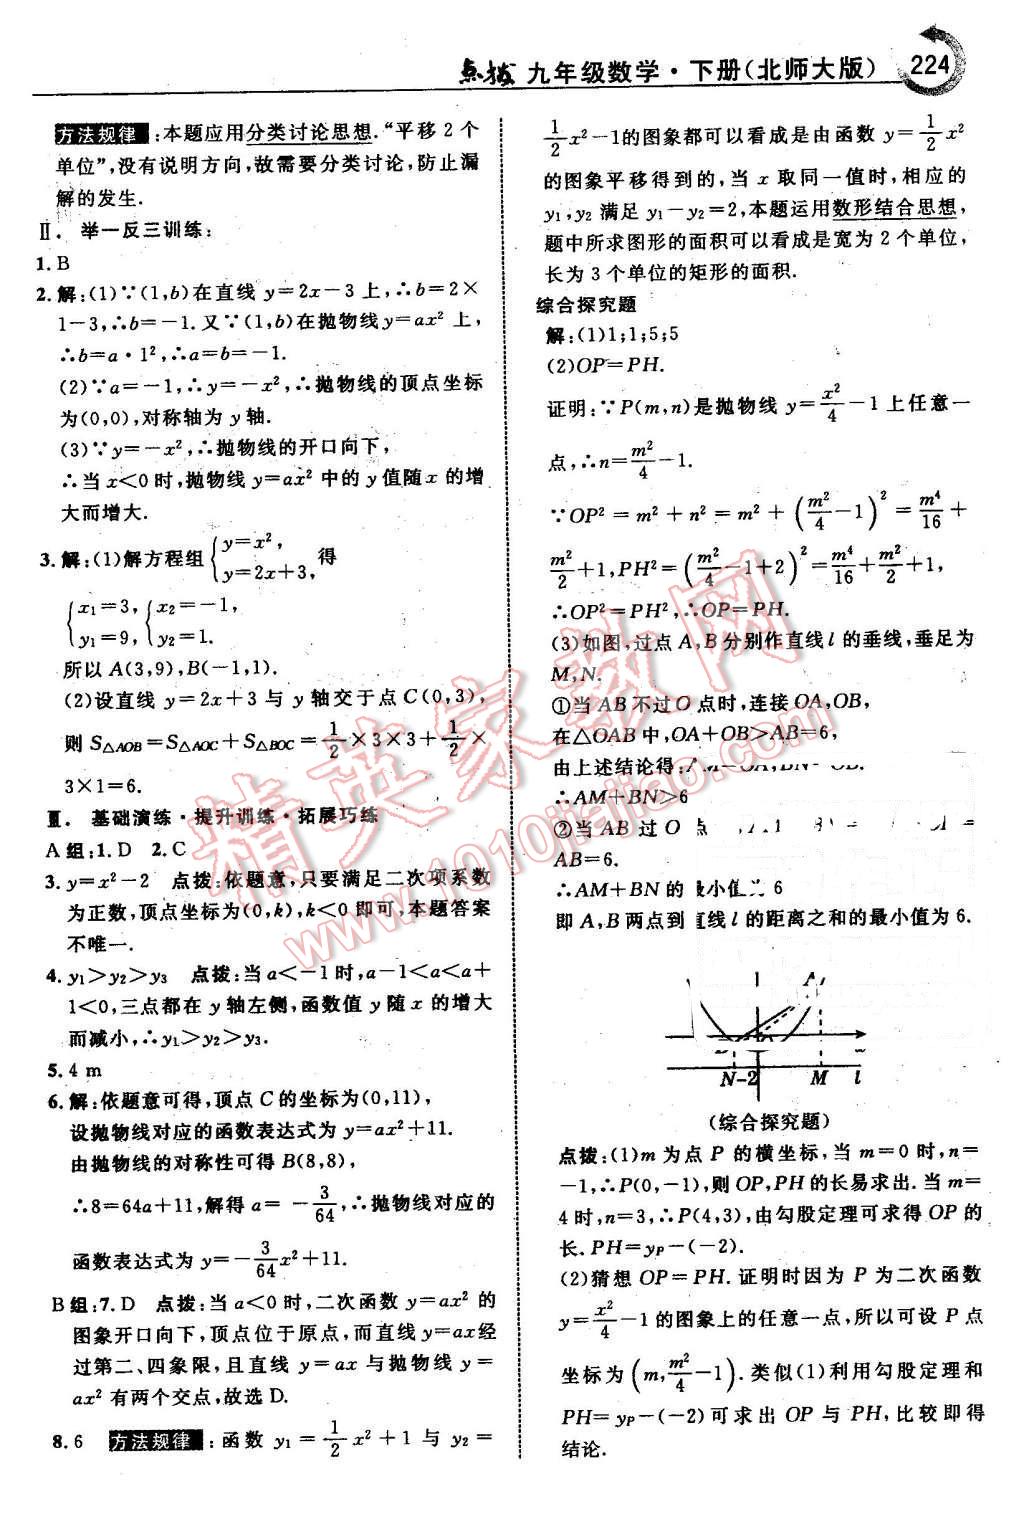 点拨 九年级数学·下册(北师大版) 224
方法规律:本题应用分类讨论思想.“平移 2 个
单位”,没有说明方向,故需要分类讨论,防止漏
解的发生.
Ⅱ. 举一反三训练:
1. B
2. 解:(1)∵(1,b)在直线 y=2x-3 上,∴b=2×
1-3,∴b=-1. 又∵(1,b)在抛物线 y=ax² 上,
∴b=a·1²,∴a=b=-1.
(2)∵a=-1,∴y=-x²,∴抛物线的顶点坐标
为(0,0),对称轴为 y 轴.
(3)∵y=-x²,∴抛物线的开口向下,
∴当 x<0 时,抛物线 y=ax² 中的 y 值随 x 的增
大而增大.
3. 解:(1)解方程组{y=x², y=2x+3, 得
{x₁=3, y₁=9, {x₂=-1, y₂=1.
所以 A(3,9),B(-1,1).
(2)设直线 y=2x+3 与 y 轴交于点 C(0,3),
则 S△AOB=S△AOC+S△BOC=1/2×3×3+1/2×
3×1=6.
Ⅲ. 基础演练·提升训练·拓展巧练
A 组:1. D 2. C
3. y=x²-2 点拨:依题意,只要满足二次项系数
为正数,顶点坐标为(0,k),k<0 即可,本题答案
不唯一.
4. y₁>y₂>y₃ 点拨:当 a<-1 时,a-1<a<a+
1<0,三点都在 y 轴左侧,函数值 y 随 x 的增大
而减小,∴y₁>y₂>y₃.
5. 4 m
6. 解:依题意可得,顶点 C 的坐标为(0,11),
设抛物线对应的函数表达式为 y=ax²+11.
由抛物线的对称性可得 B(8,8),
∴8=64a+11,解得 a=-3/64,∴抛物线对应的
函数表达式为 y=-3/64x²+11.
B 组:7. D 点拨:当 a<0 时,二次函数 y=ax² 的
图象开口向下,顶点位于原点,而直线 y=ax经
过第二、四象限,且直线 y=ax 与抛物线 y=
ax² 有两个交点,故选 D.
8. 6 方法规律:函数 y₁=1/2x²+1 与 y₂=
1/2x²-1的图象都可以看成是由函数 y=1/2x²
的图象平移得到的,当 x 取同一值时,相应的
y₁,y₂ 满足 y₁-y₂=2,本题运用数形结合思想,
题中所求图形的面积可以看成是宽为 2 个单位,
长为 3 个单位的矩形的面积.
综合探究题
解:(1)1;1;5;5
(2)OP=PH.
证明:∵P(m,n)是抛物线 y=x²/4-1 上任意一
点,∴n=m²/4-1.
∵OP²=m²+n²=m²+(m²/4-1)²=m⁴/16+
m²/2+1,PH²=(m²/4-1+2)²=m⁴/16+m²/2+1,
∴OP²=PH²,∴OP=PH.
(3)如图,过点 A,B 分别作直线 l 的垂线,垂足为
M,N.
①当 AB 不过 O 点时,连接 OA,OB,
在△OAB 中,OA+OB>AB=6,
由上述结论得:AM=OA,BN=OB.
∴AM+BN>6
②当 AB 过 O 点
AB=6.
∴AM+BN 的最小值为 6
即 A,B 两点到直线 l 的距离之和的最小值为 6.
A
N -2 M l
(综合探究题)
点拨:(1)m 为点 P 的横坐标,当 m=0 时,n=
-1,∴P(0,-1),则 OP,PH 的长易求出. 当 m=
4时,n=3,∴P(4,3),由勾股定理可求得 OP 的
长. PH=yP-(-2).
(2)猜想 OP=PH. 证明时因为 P 为二次函数
y=x²/4-1 的图象上的任意一点,所以可设 P 点
坐标为(m,m²/4-1). 类似(1)利用勾股定理和
PH=yP-(-2)可求出 OP 与 PH,比较即得
结论.
精英家教网
www.1010jiajiao.com